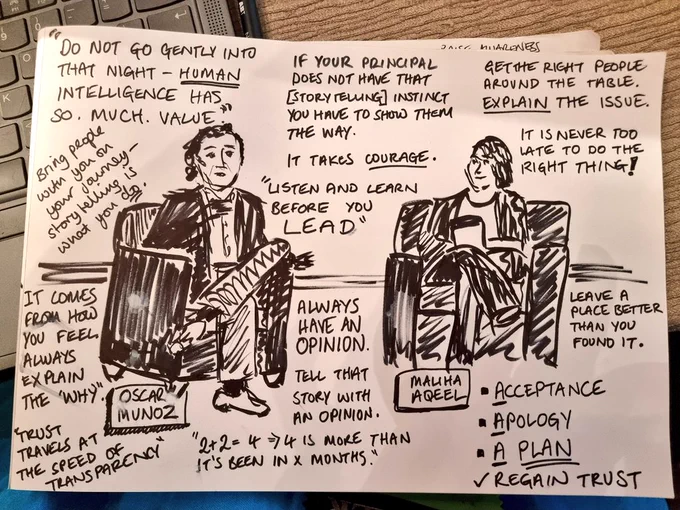 "DO NOT GO GENTLY INTO
THAT NIGHT - HUMAN
INTELLIGENCE HAS
SO. MUCH. VALUE"
Bring people
with you on
your journey -
storytelling is
what you do.
IT COMES
FROM HOW
YOU FEEL.
ALWAYS
EXPLAIN
THE "WHY".
"TRUST
TRAVELS AT
THE SPEED OF
TRANSPARENCY"
OSCAR
MUNOZ
IF YOUR PRINCIPAL
DOES NOT HAVE THAT
[STORYTELLING] INSTINCT
YOU HAVE TO SHOW THEM
THE WAY.
IT TAKES COURAGE.
"LISTEN AND LEARN
BEFORE YOU
LEAD"
ALWAYS
HAVE AN
OPINION.
TELL THAT
STORY WITH
AN OPINION.
"2+2=4 => 4 IS MORE THAN
IT'S BEEN IN X MONTHS."
AWARENESS
GET THE RIGHT PEOPLE
AROUND THE TABLE.
EXPLAIN THE ISSUE.
IT IS NEVER TOO
LATE TO DO THE
RIGHT THING!
LEAVE A
PLACE BETTER
THAN YOU
FOUND IT.
MALIHA
AQEEL
▪ ACCEPTANCE
▪ APOLOGY
▪ A PLAN
✓ REGAIN TRUST